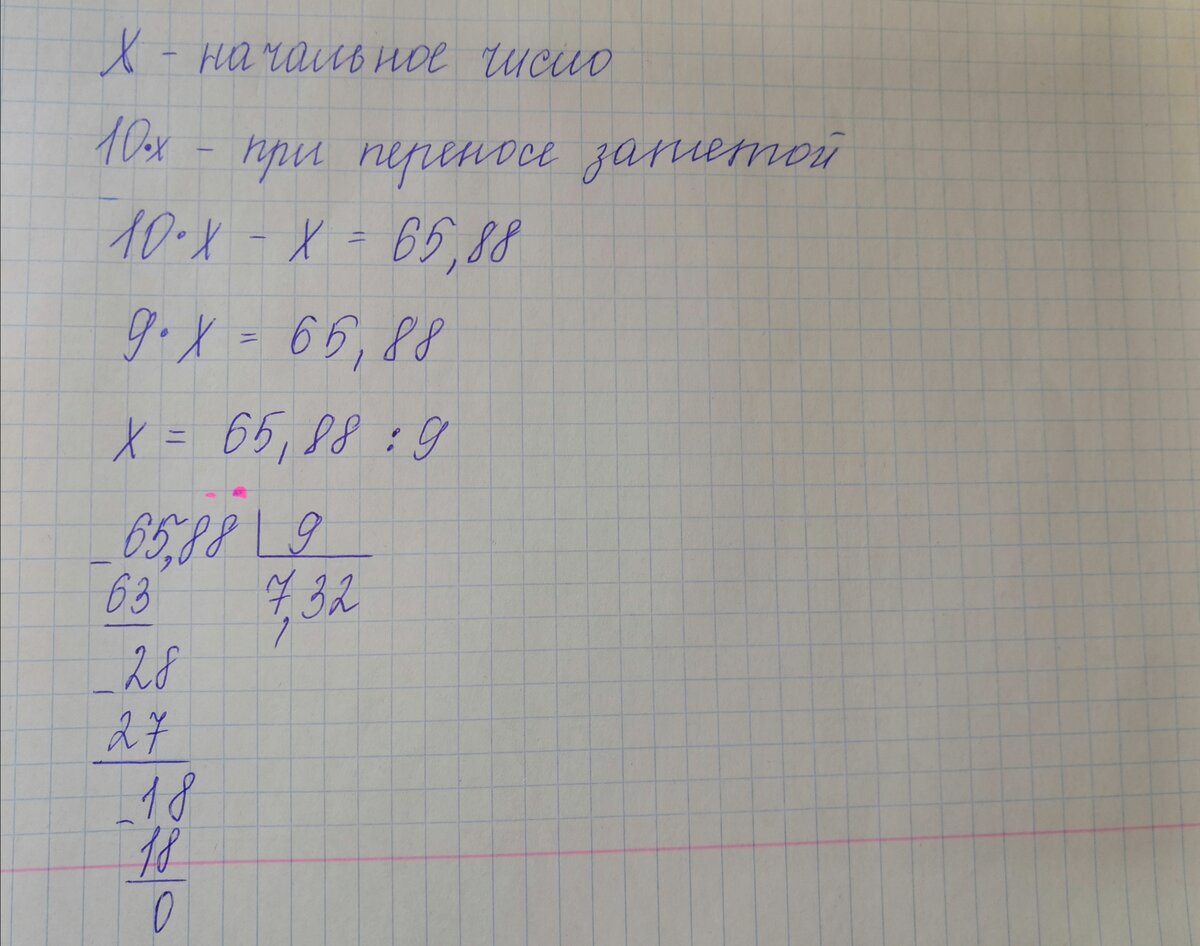 X - начальное число
10·x - при переносе запятой
10·X - X = 65,88
9·X = 65,88
X = 65,88 : 9
65,88 | 9
63 7,32
28
27
18
18
0